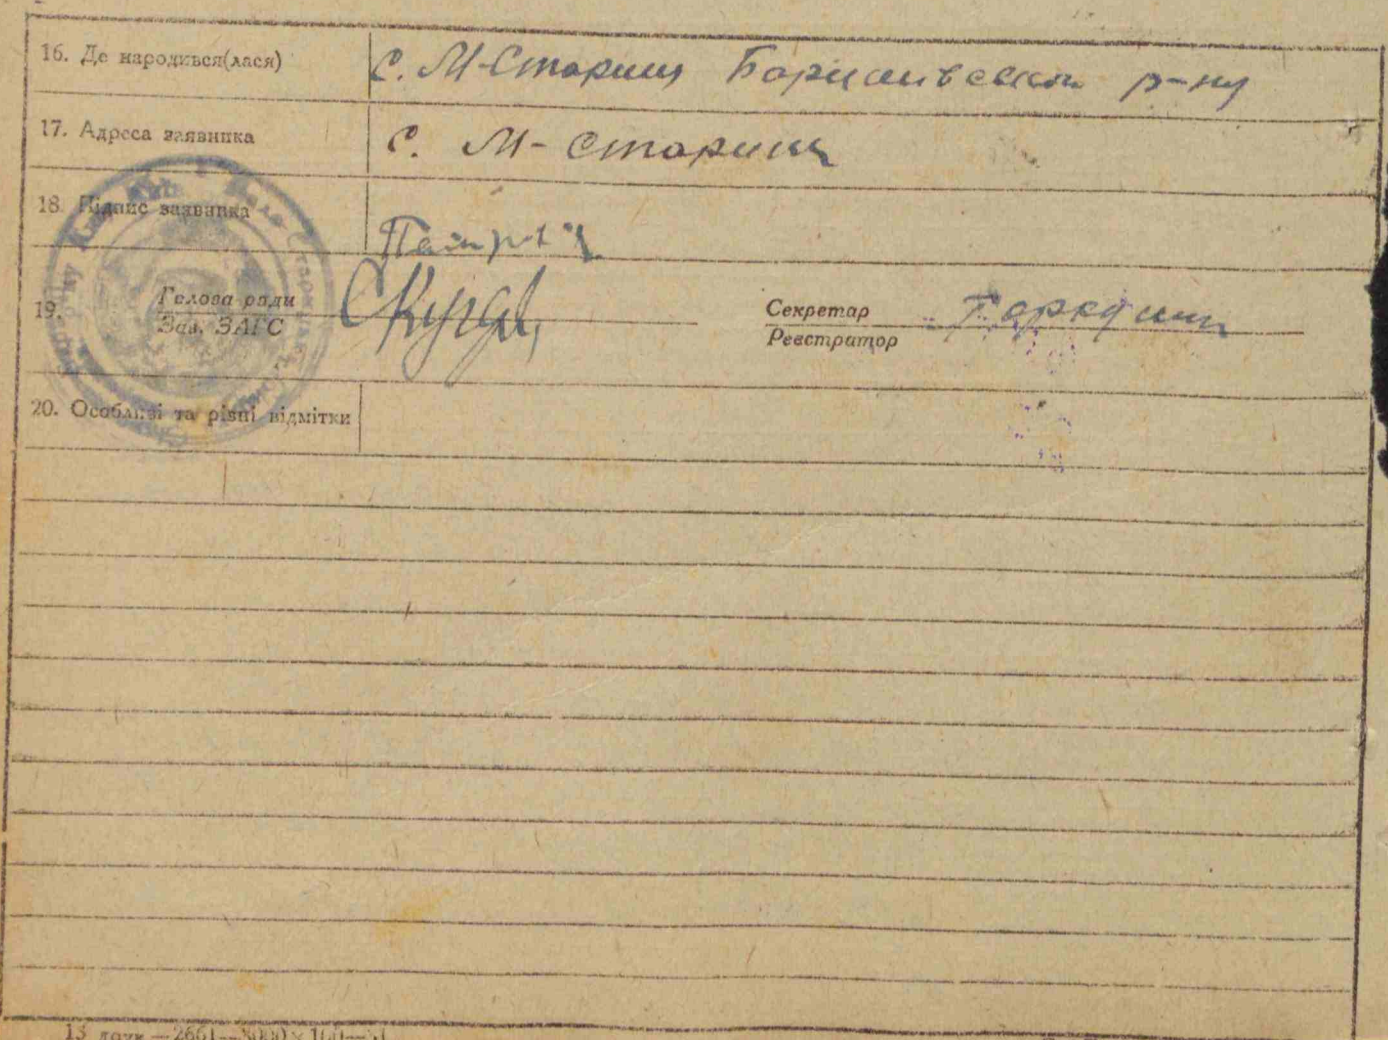 16. Де народився(лася) с. М-Стариця Баришівськ р-ну
17. Адреса заявника с. М-Стариця
18. Підпис заявника
19. Голова ради
Зав. ЗАГС
Секретар
Реєстратор
20. Особливі та різні відмітки